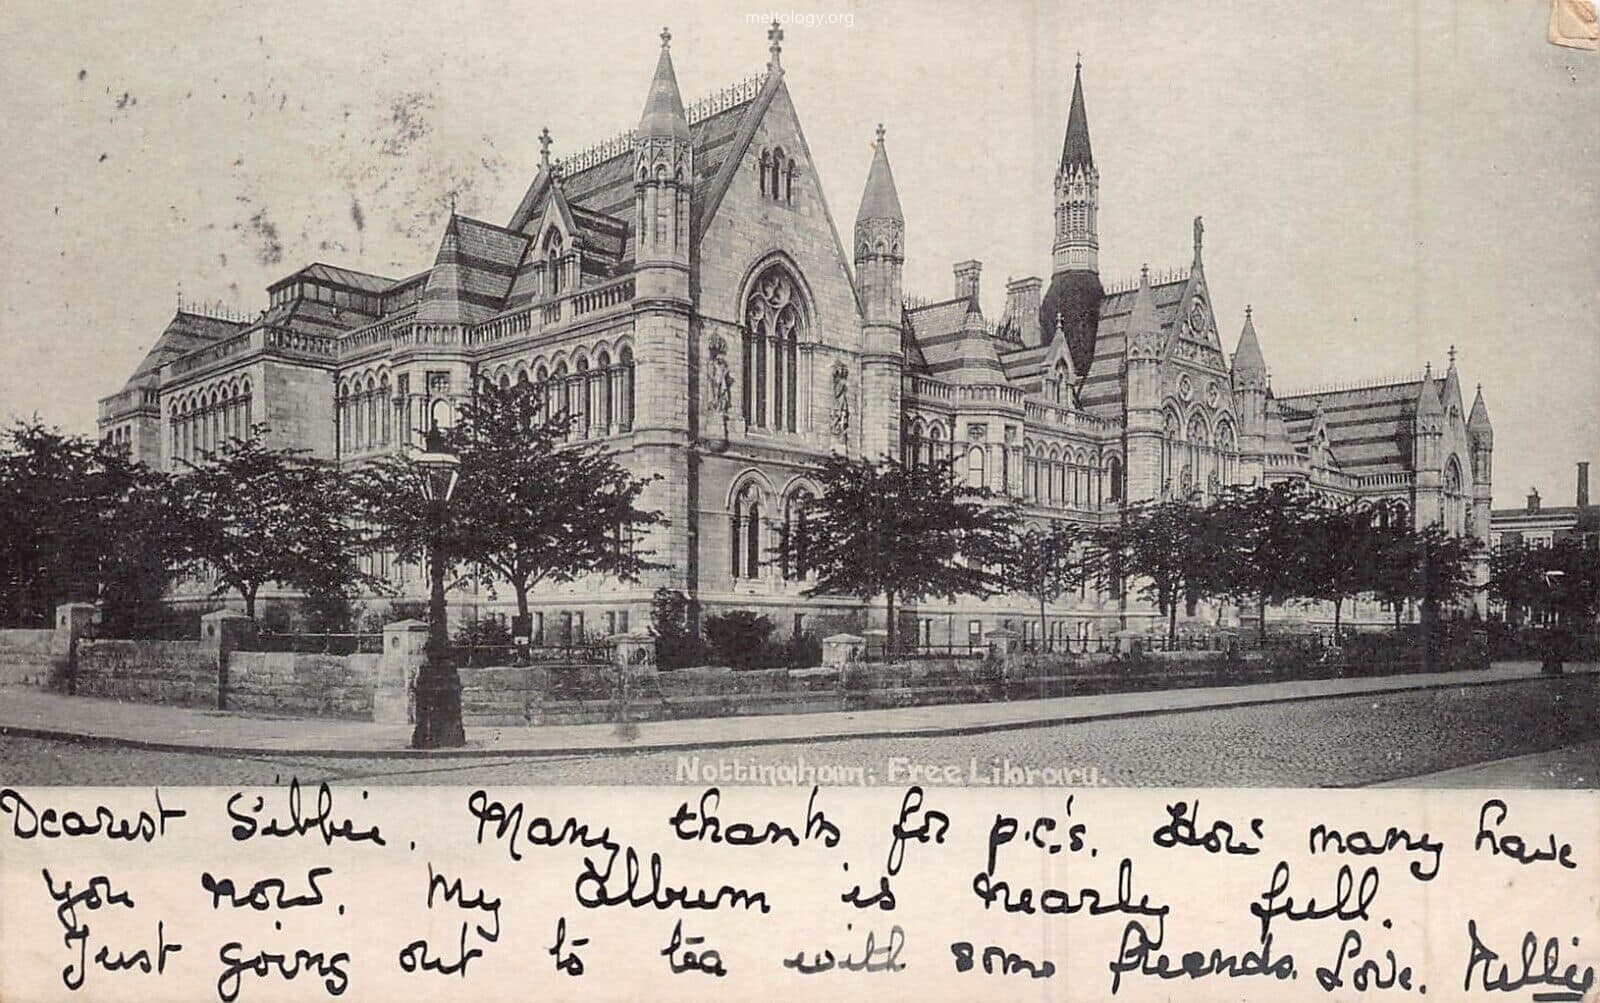 meltology.org
Nottingham; Free Library.
Dearest Sibbie. Many thanks for p.c.'s. How many have
you now. My Album is nearly full.
Just going out to tea with some friends. Love. Nellie